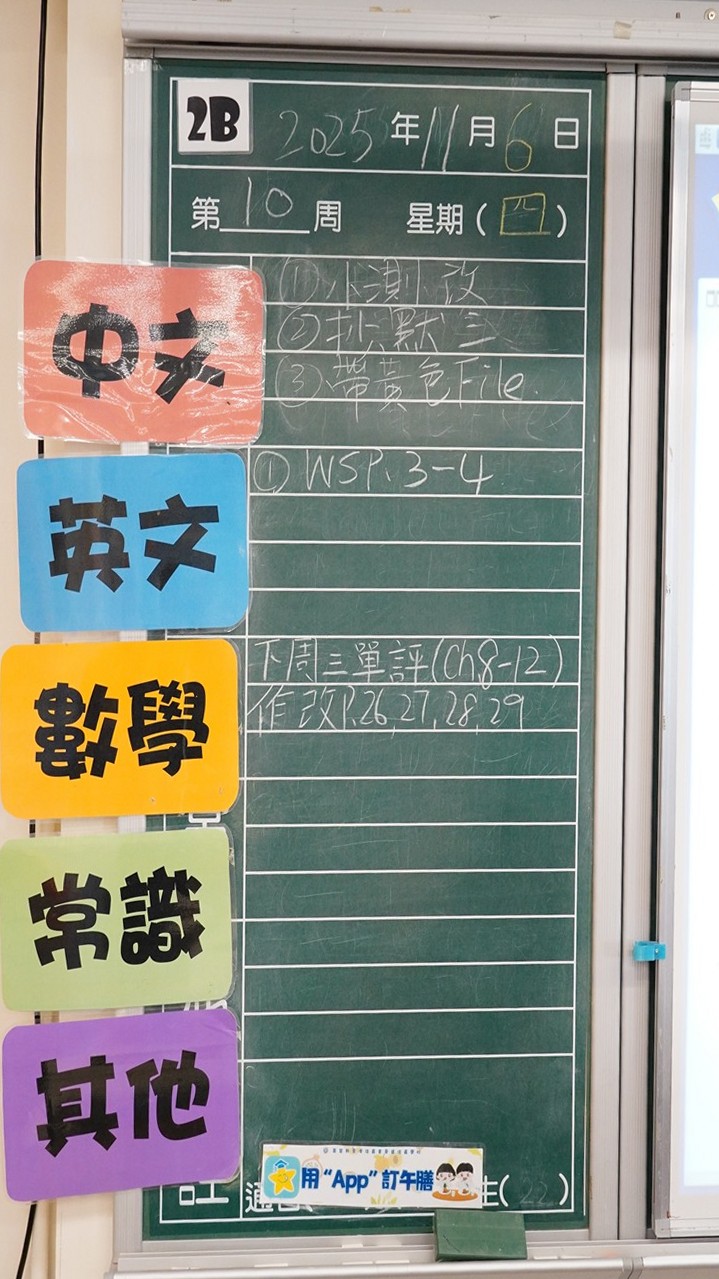 2B 2025年11月6日
第10周 星期(四)
中文
①小測改
②抄默三
③帶黃色File.
英文
① WSP.3-4
數學
下周三單評(Ch.8-12)
作改P.26,27,28,29
常識
其他
用“App”訂午膳